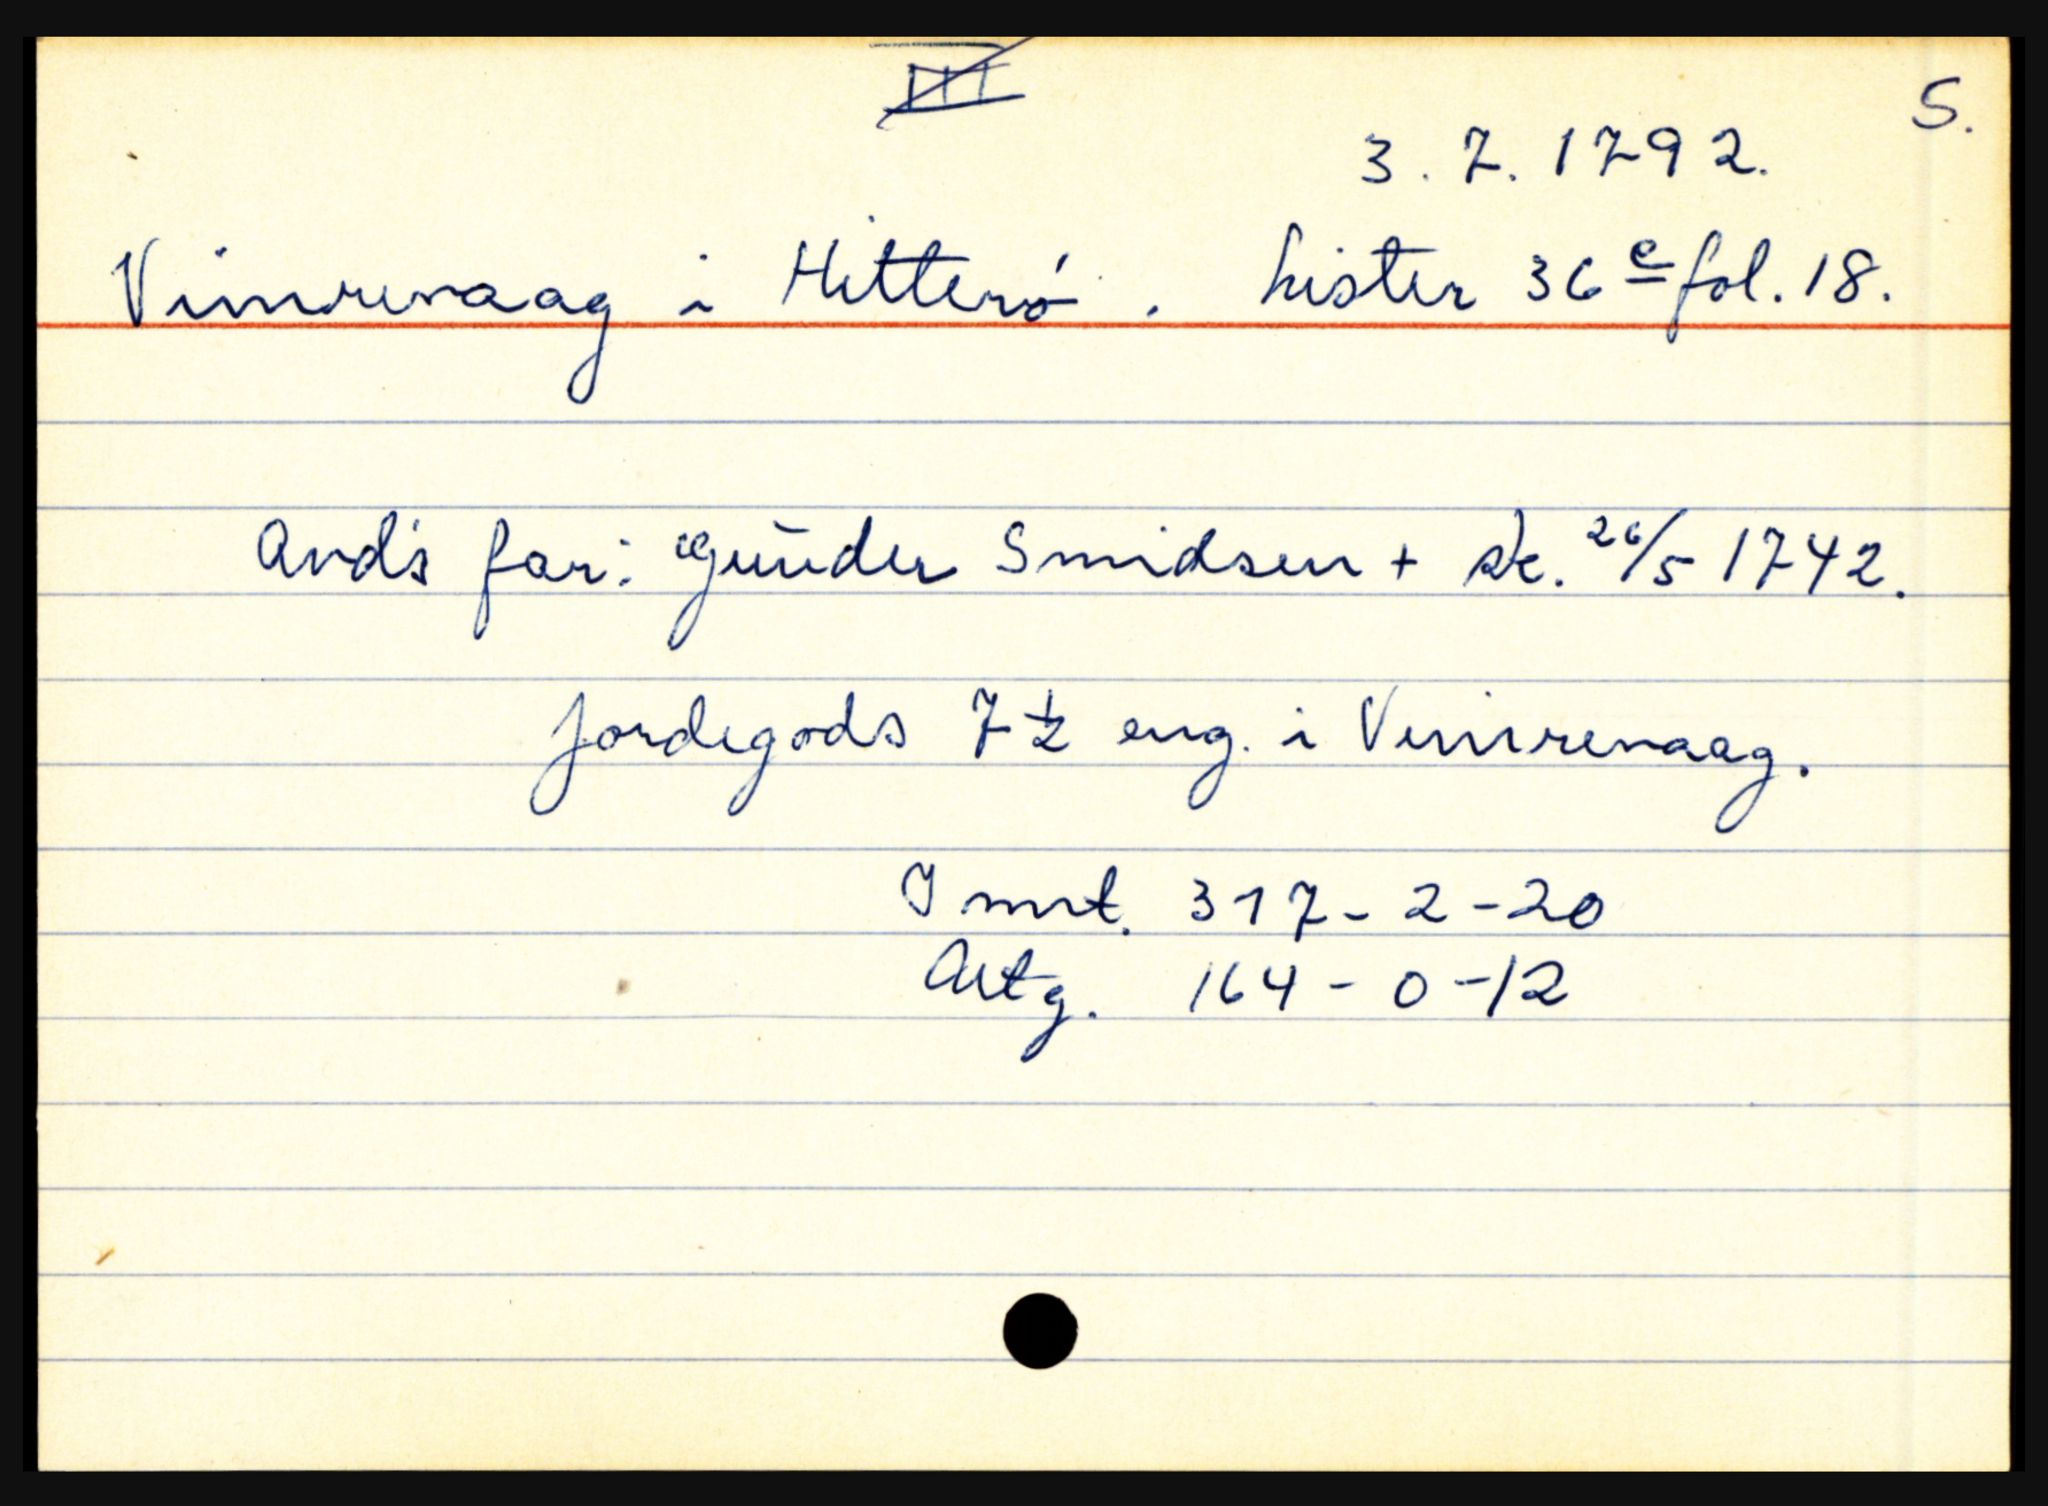 III
S.
3. 7. 1792.
Vimrevaag i Hitterø. Lister 36 e fol. 18.
And's far: Gunder Smidsen + sk. 26/5 1742.
Jordegods 7 1/2 eng. i Vimrevaag.
I mrt. 317-2-20
Artg. 164-0-12